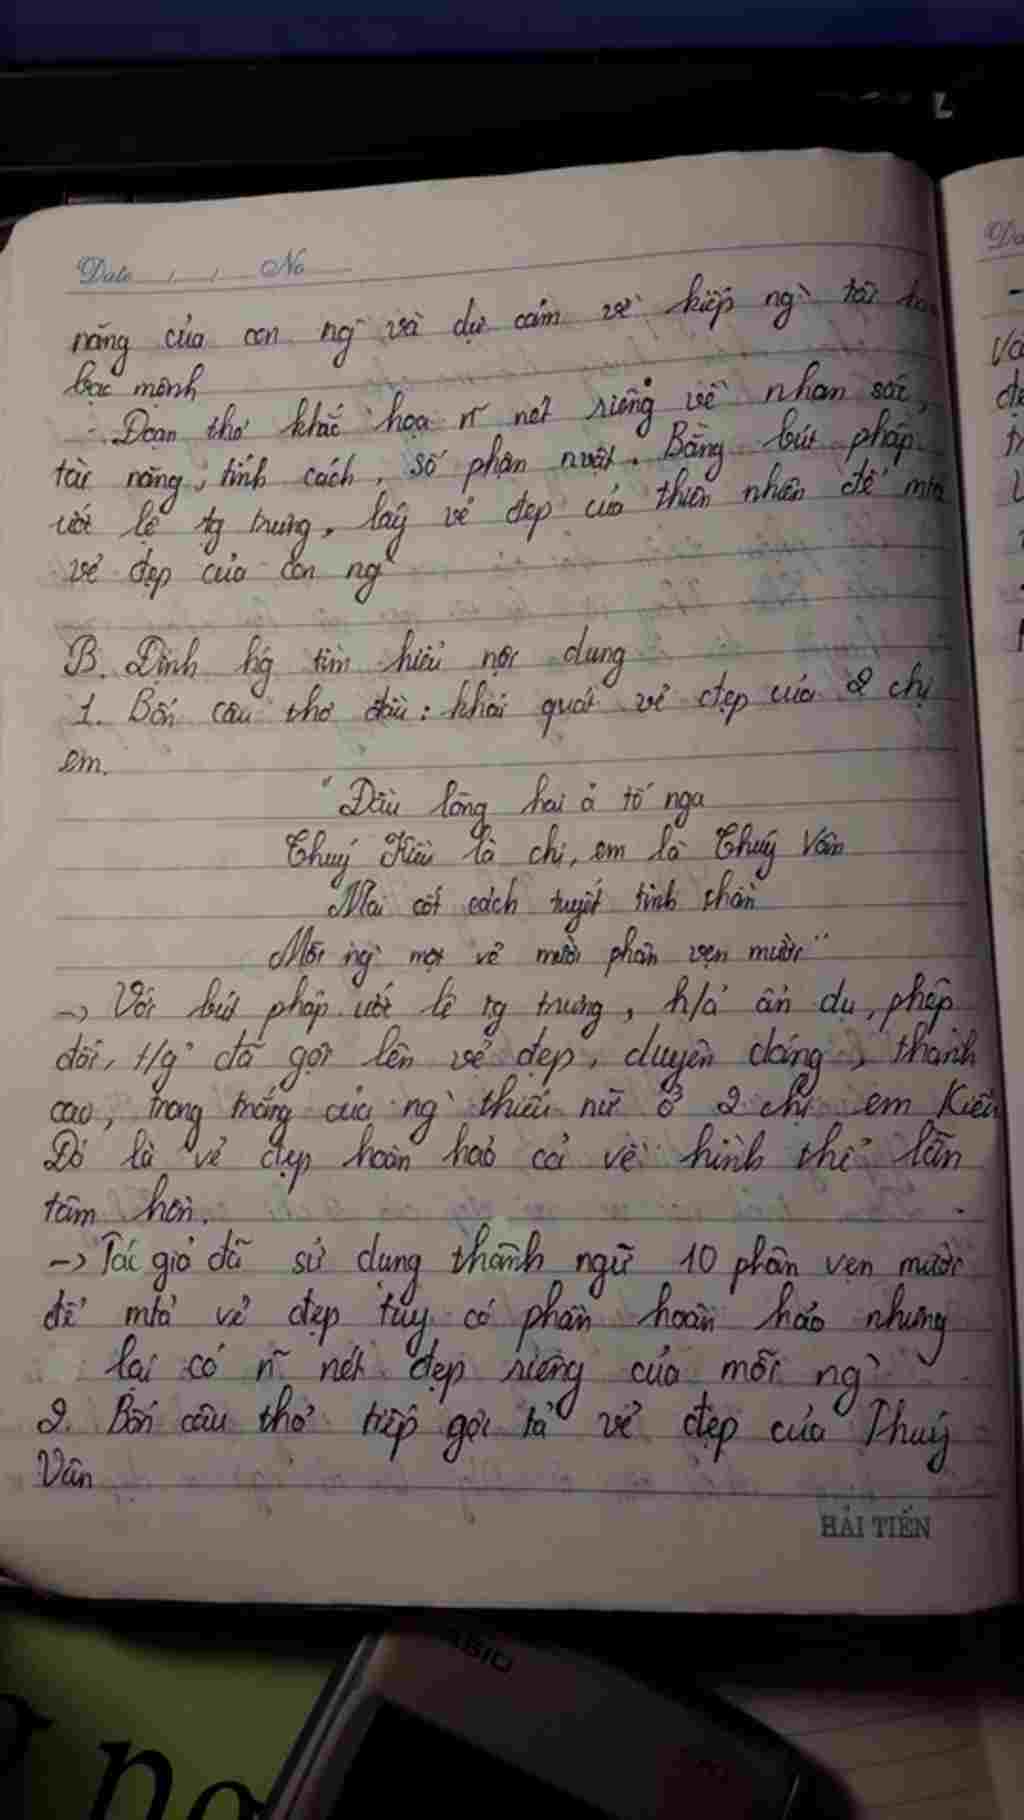 Date / / No
năng của con ng` và dự cảm về kiếp ng` tài hoa
bạc mệnh
Đoạn thơ khắc họa n~ nét riêng về nhan sắc,
tài năng, tính cách, số phận nvật. Bằng bút pháp
ước lệ tg trưng, lấy vẻ đẹp của thiên nhiên để mtả
vẻ đẹp của con ng`
B. Định hg tìm hiểu nội dung
1. Bốn câu thơ đầu: khái quát vẻ đẹp của 2 chị
em.
"Đầu lòng hai ả tố nga
Thuý Kiều là chị, em là Thuý Vân
Mai cốt cách tuyết tinh thần
Mỗi ng` một vẻ mười phân vẹn mười"
-> Với bút pháp ước lệ tg trưng, h/ả ẩn dụ, phép
đối, t/g` đã gợi lên vẻ đẹp, duyên dáng, thanh
cao, trong trắng của ng` thiếu nữ ở 2 chị em Kiều
Đó là vẻ đẹp hoàn hảo cả về hình thể lẫn
tâm hồn.
-> Tác giả đã sử dụng thành ngữ 10 phân vẹn mười
để mtả vẻ đẹp tuy có phần hoàn hảo nhưng
lại có n~ nét đẹp riêng của mỗi ng`
2. Bốn câu thơ tiếp gợi tả vẻ đẹp của Thuý
Vân
HẢI TIẾN